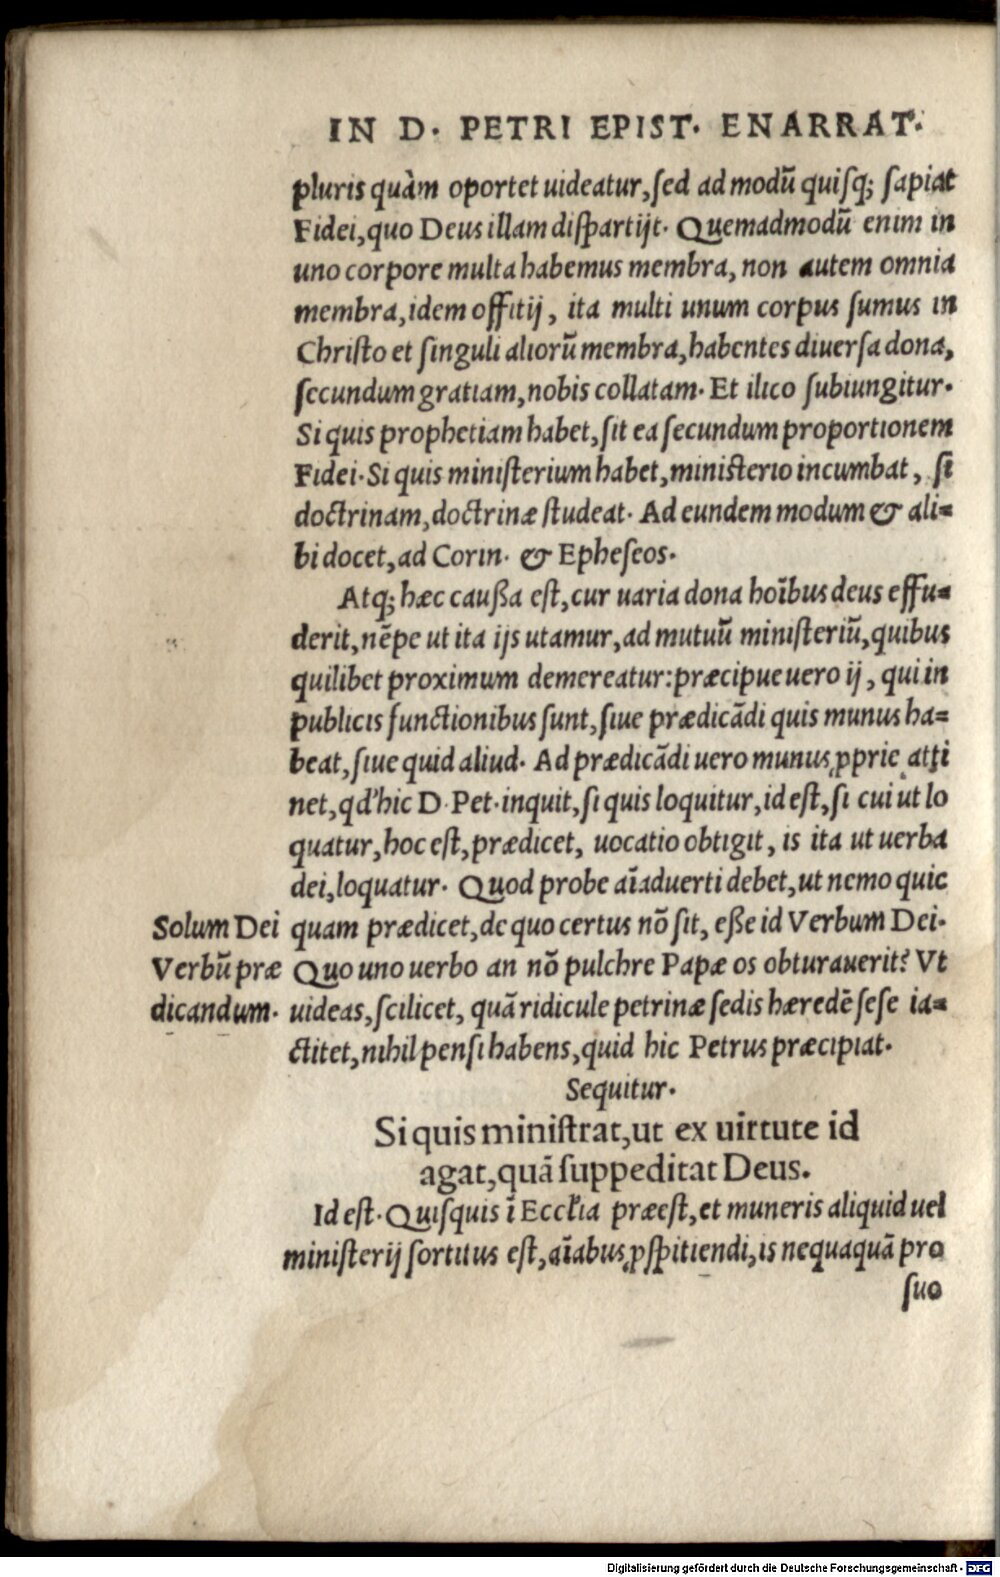 IN D. PETRI EPIST. ENARRAT.
pluris quàm oportet uideatur, ſed ad modū quiſq; ſapiat
Fidei, quo Deus illam diſpartijt. Quemadmodū enim in
uno corpore multa habemus membra, non autem omnia
membra, idem offitij, ita multi unum corpus ſumus in
Chriſto et ſinguli aliorū membra, habentes diuerſa dona,
ſecundum gratiam, nobis collatam. Et ilico ſubiungitur.
Si quis prophetiam habet, ſit ea ſecundum proportionem
Fidei. Si quis miniſterium habet, miniſterio incumbat, ſi
doctrinam, doctrinæ ſtudeat. Ad eundem modum & ali=
bi docet, ad Corin. & Epheſeos.
Atq; hæc cauſſa eſt, cur uaria dona hoībus deus effu=
derit, nēpe ut ita ijs utamur, ad mutuū miniſteriū, quibus
quilibet proximum demereatur: præcipue uero ij, qui in
publicis functionibus ſunt, ſiue prædicādi quis munus ha=
beat, ſiue quid aliud. Ad prædicādi uero munus ꝓprie atti
net, qd' hic D. Pet. inquit, ſi quis loquitur, id eſt, ſi cui ut lo
quatur, hoc eſt, prædicet, uocatio obtigit, is ita ut uerba
dei, loquatur. Quod probe aīaduerti debet, ut nemo quic
Solum Dei quam prædicet, de quo certus nō ſit, eſſe id Verbum Dei.
Verbū præ Quo uno uerbo an nō pulchre Papæ os obturauerit? Vt
dicandum. uideas, ſcilicet, quā ridicule petrinæ ſedis hæredē ſeſe ia=
ctitet, nihil penſi habens, quid hic Petrus præcipiat.
Sequitur.
Si quis miniſtrat, ut ex uirtute id
agat, quā ſuppeditat Deus.
Id eſt. Quiſquis ī Eccl'ia præeſt, et muneris aliquid uel
miniſterij ſortitus eſt, aīabus ꝓſpitiendi, is nequaquā pro
ſuo
Digitalisierung gefördert durch die Deutsche Forschungsgemeinschaft - DFG